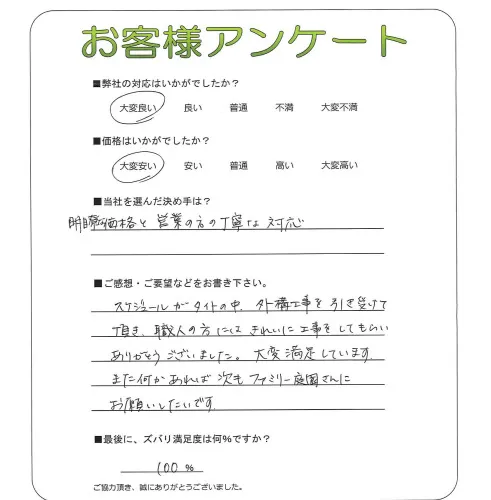 お客様アンケート
■弊社の対応はいかがでしたか？
大変良い 良い 普通 不満 大変不満
■価格はいかがでしたか？
大変安い 安い 普通 高い 大変高い
■当社を選んだ決め手は？
価格と 営業の方の丁寧な 対応
■ご感想・ご要望などをお書き下さい。
スケジュールがタイトの中、外構工事を引き受けて
頂き、職人の方には きれいに工事をしてもらい
ありがとうございました。大変満足しています。
また何かあれば次もファミリー庭園さんに
お願いしたいです。
■最後に、ズバリ満足度は何％ですか？
100 %
ご協力頂き、誠にありがとうございました。